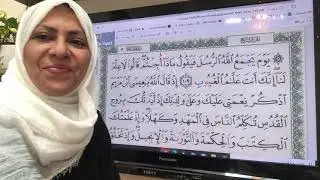 يَوْمَ يَجْمَعُ ٱللَّهُ ٱلرُّسُلَ فَيَقُولُ مَاذَآ أُجِبْتُمْ قَالُوا۟ لَا عِلْمَ
لَنَآ إِنَّكَ أَنتَ عَلَّٰمُ ٱلْغُيُوبِ ١٠٩ إِذْ قَالَ ٱللَّهُ يَٰعِيسَى ٱبْنَ مَرْيَمَ
ٱذْكُرْ نِعْمَتِى عَلَيْكَ وَعَلَىٰ وَٰلِدَتِكَ إِذْ أَيَّدتُّكَ بِرُوحِ
ٱلْقُدُسِ تُكَلِّمُ ٱلنَّاسَ فِى ٱلْمَهْدِ وَكَهْلًا وَإِذْ عَلَّمْتُكَ
ٱلْكِتَٰبَ وَٱلْحِكْمَةَ وَٱلتَّوْرَىٰةَ وَٱلْإِنجِيلَ وَإِذْ تَخْلُقُ
Panasonic